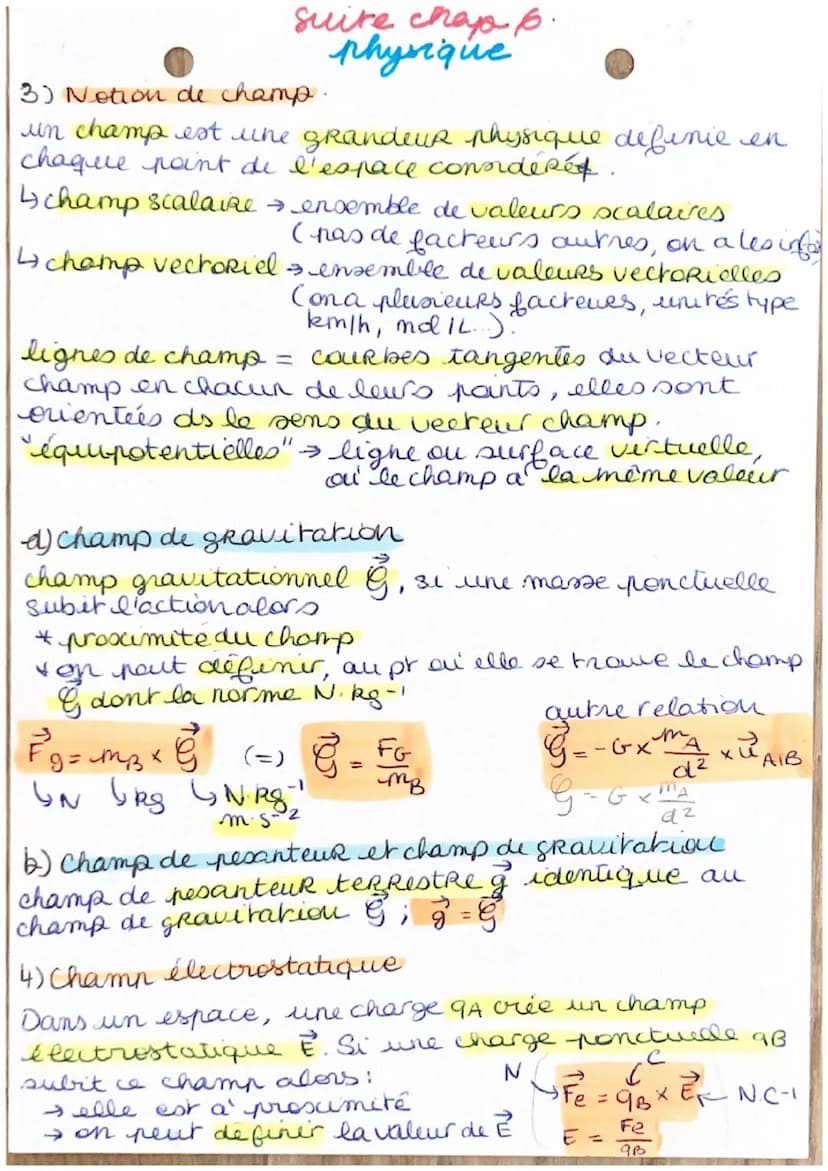 suite chap 6.
physique
3) Notion de champ.
un champ est une grandeur physique définie en
chaque point de l'espace considéré.
↳ champ scalaire → ensemble de valeurs scalaires
(pas de facteurs autres, on a les infos
↳ champ vectoriel → ensemble de valeurs vectorielles
(on a plusieurs facteurs, unités type
km/h, mol/L...).
lignes de champ = courbes tangentes du vecteur
champ en chacun de leurs points, elles sont
orientées ds le sens du vecteur champ.
"équipotentielles" → ligne ou surface virtuelle,
où le champ a la même valeur
a) champ de gravitation
champ gravitationnel G⃗, si une masse ponctuelle
subit l'action alors
* proximité du champ
* on peut définir, au pt où elle se trouve le champ
G⃗ dont la norme N.kg⁻¹
autre relation
F⃗g = mB × G⃗ (=) G⃗ = FG/mB
G⃗ = -G × mA/d² × u⃗A/B
↳ N ↳ kg ↳ N.kg⁻¹
m.s⁻²
G = G × mA/d²
b) Champ de pesanteur et champ de gravitation
champ de pesanteur terrestre g⃗ identique au
champ de gravitation G⃗ ; g⃗ = G⃗
4) Champ électrostatique
Dans un espace, une charge qA crée un champ
électrostatique E⃗. Si une charge ponctuelle qB
subit ce champ alors :
→ elle est à proximité
→ on peut définir la valeur de E⃗
N C
F⃗e = qB × E⃗ ← N.C-1
E = Fe/qB